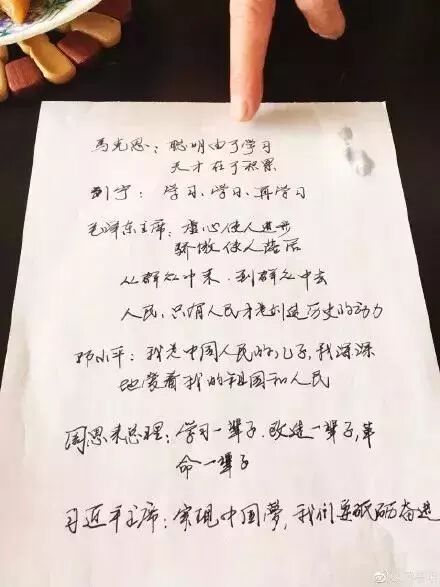 马克思：聪明由于学习
天才在于积累
列宁：学习、学习、再学习
毛泽东主席：虚心使人进步
骄傲使人落后
从群众中来，到群众中去
人民，只有人民才是创造历史的动力
邓小平：我是中国人民的儿子，我深深
地爱着我的祖国和人民
周恩来总理：学习一辈子，改造一辈子，革
命一辈子
习近平主席：实现中国夢，我们要砥砺奋进